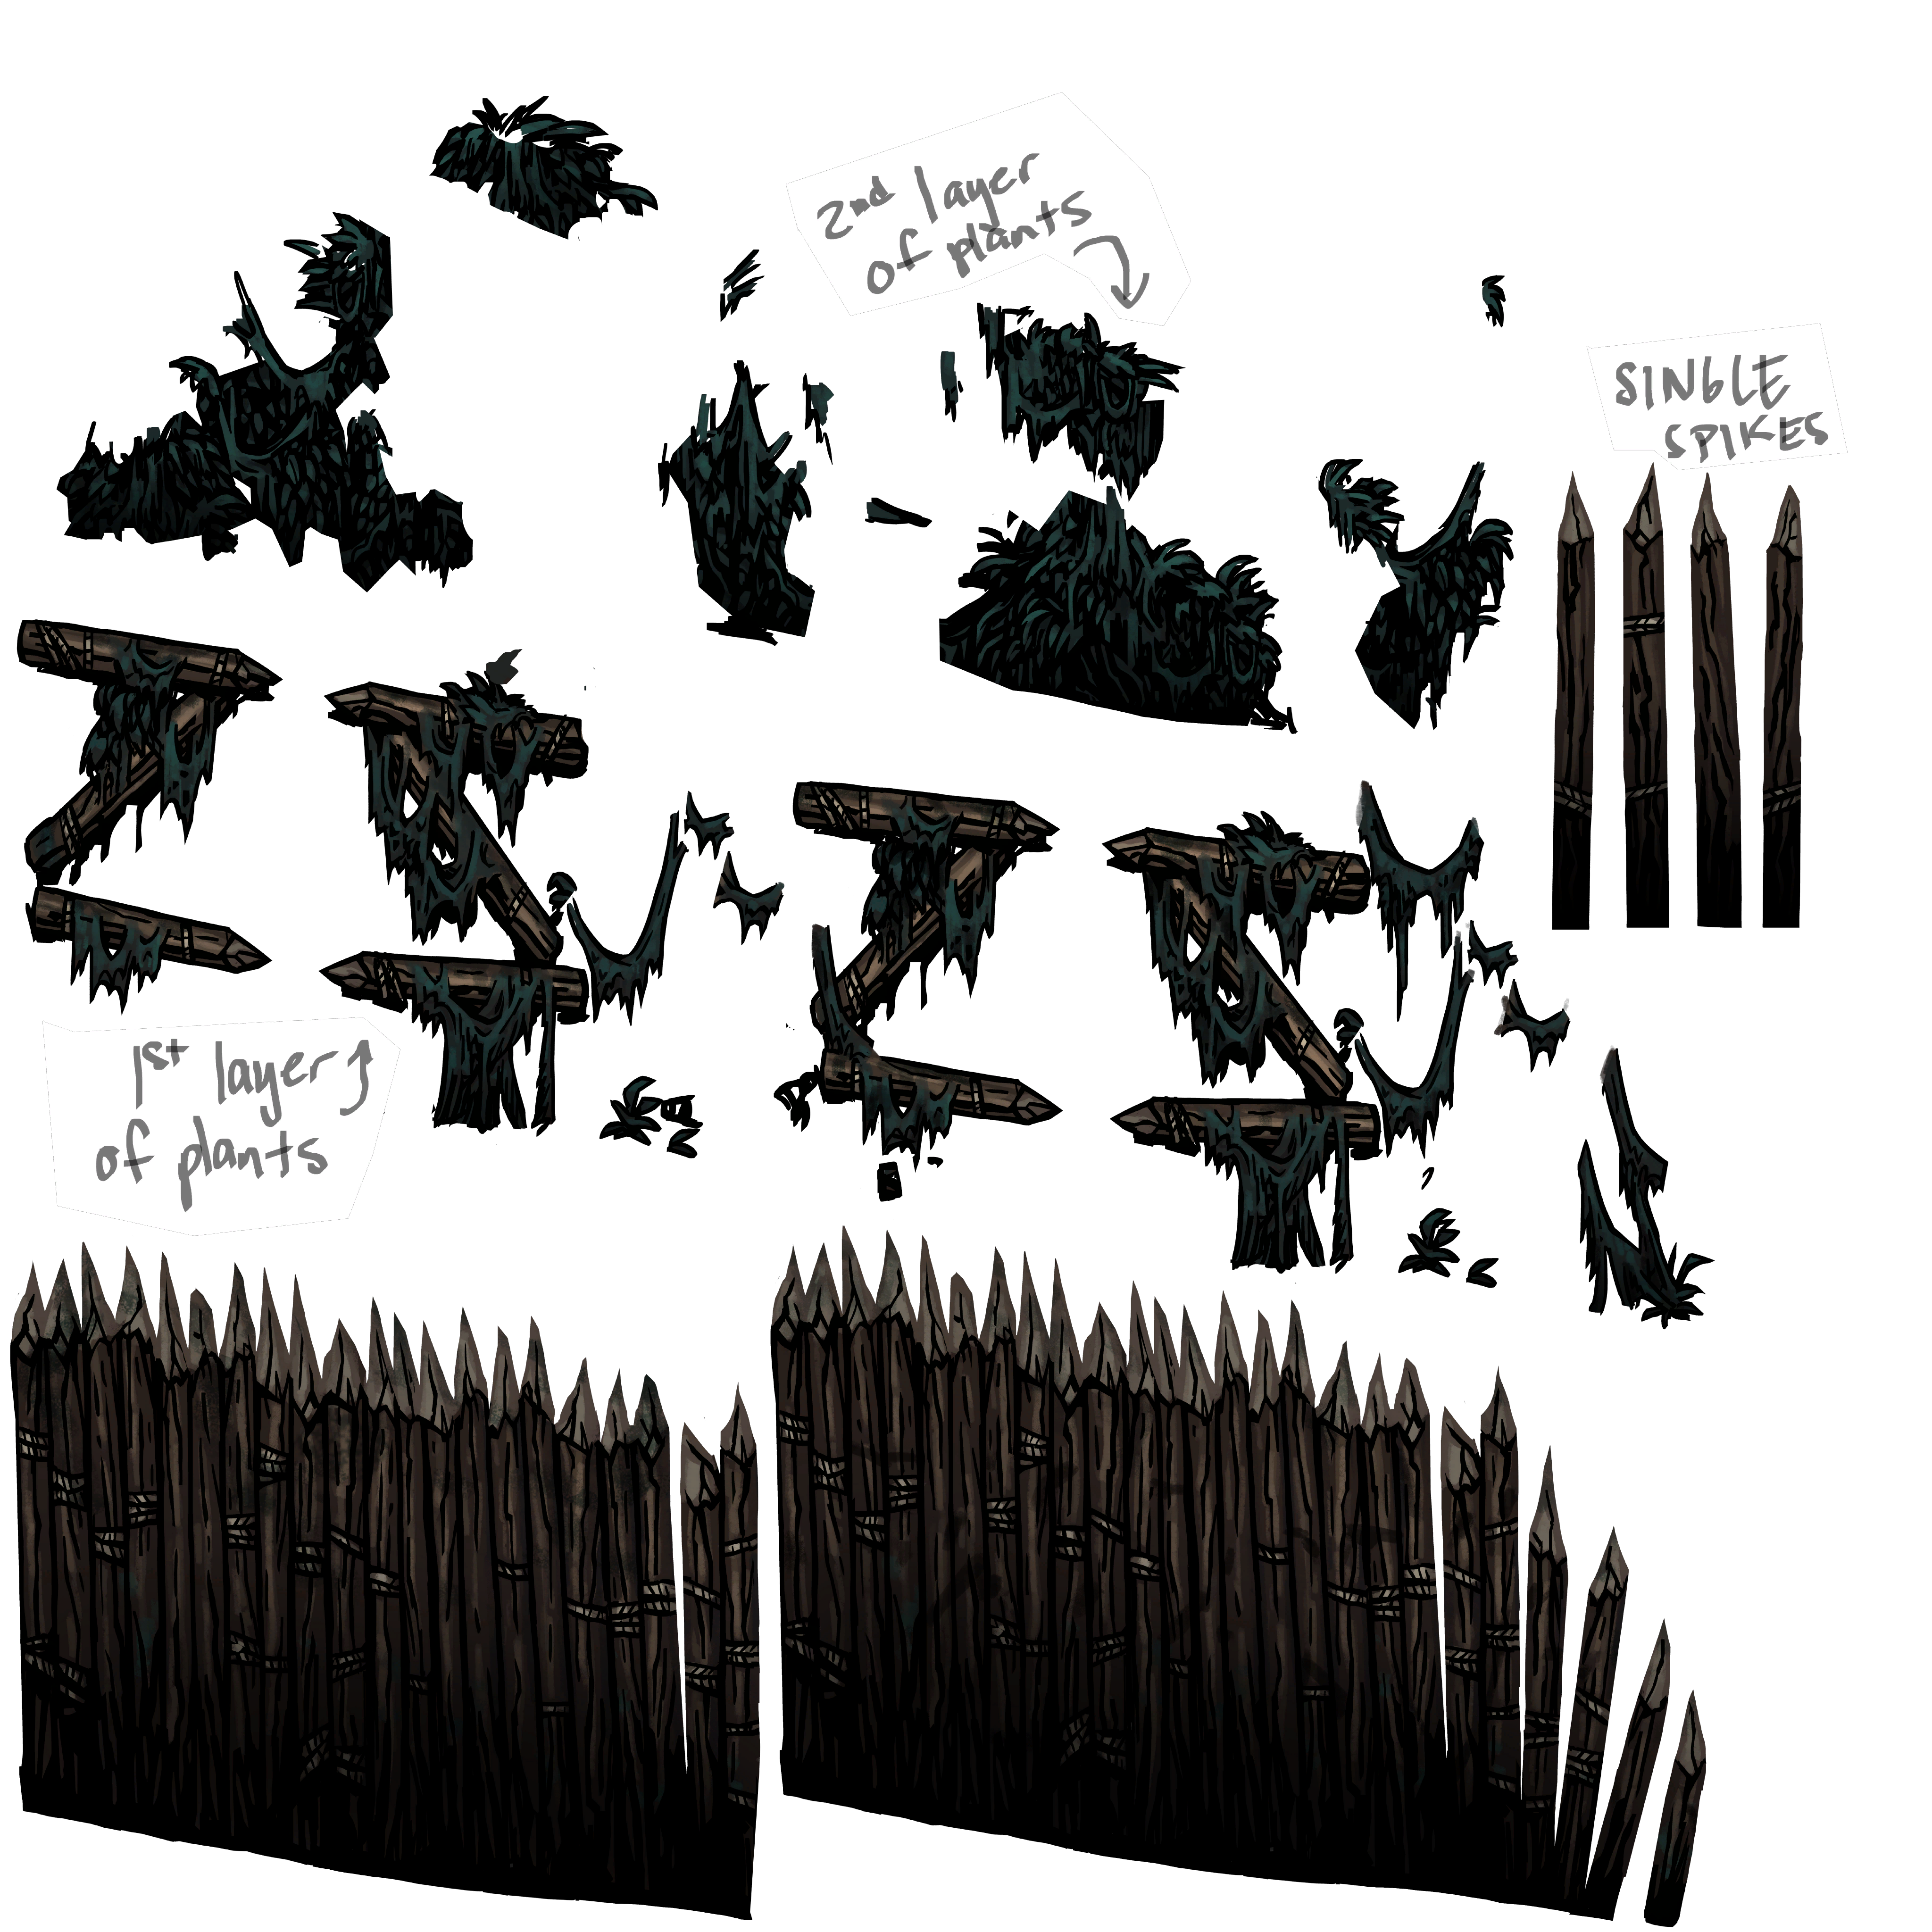 2nd layer
of plants
SINGLE
SPIKES
1st layer
of plants